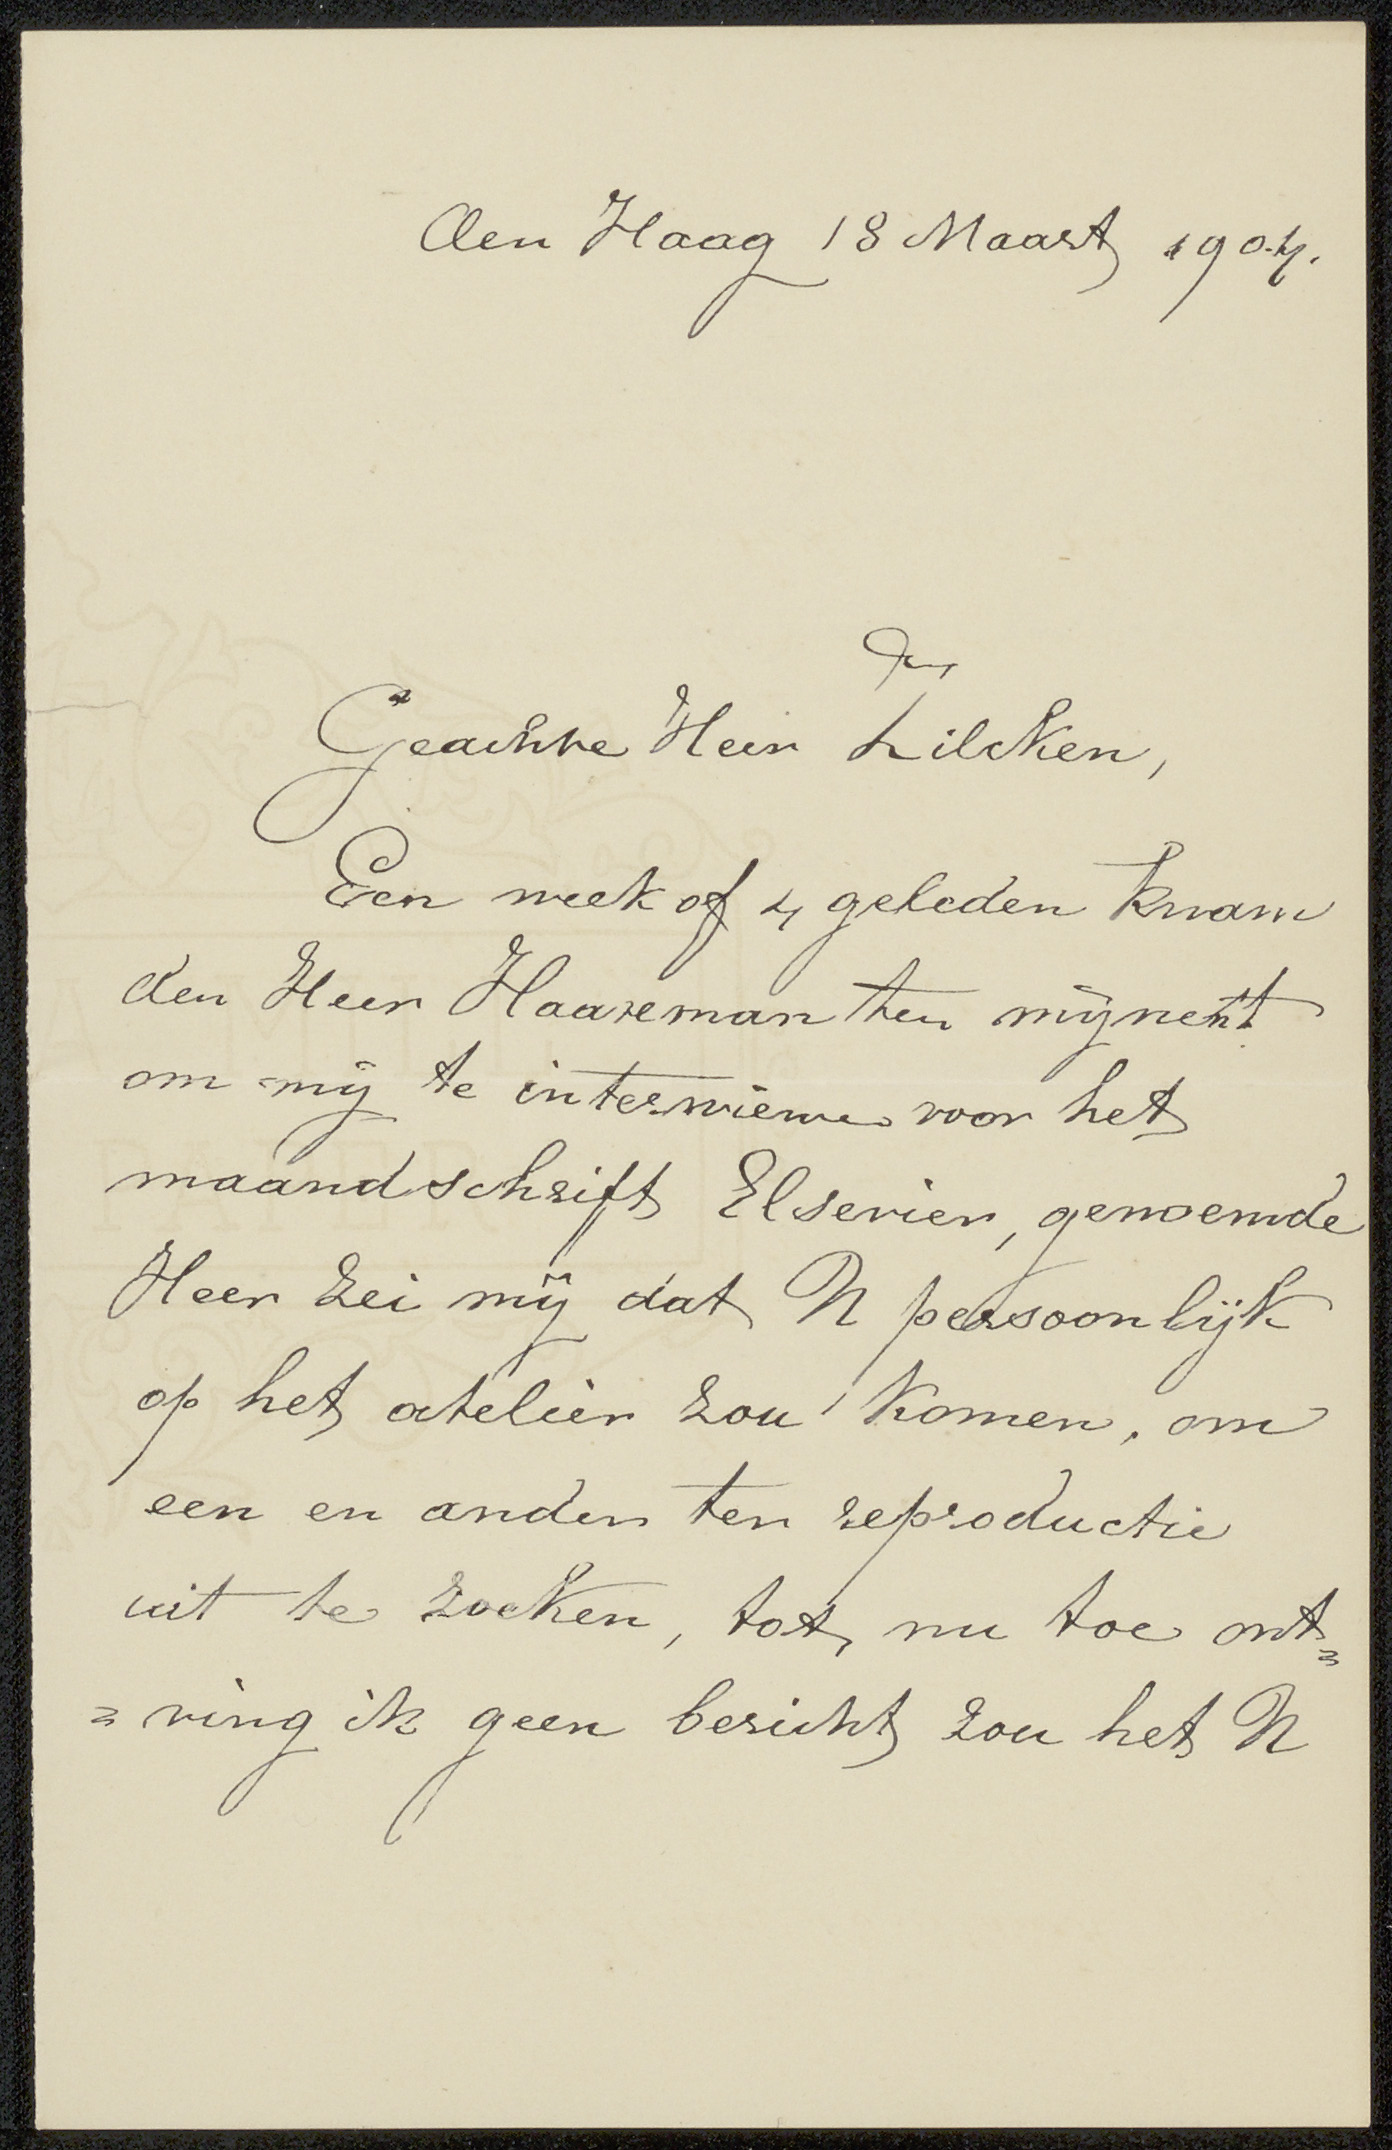 den Haag 18 Maart 1904.
Geachte Heer Zilcken,
Een week of 4 geleden kwam
den Heer Haaxeman ten mijnent
om mij te interviewe voor het
maandschrift Elsevier, genoemde
Heer zei mij dat U persoonlijk
op het atelier zou komen, om
een en ander ter reproductie
uit te zoeken, tot nu toe ont=
=ving ik geen bericht zou het U